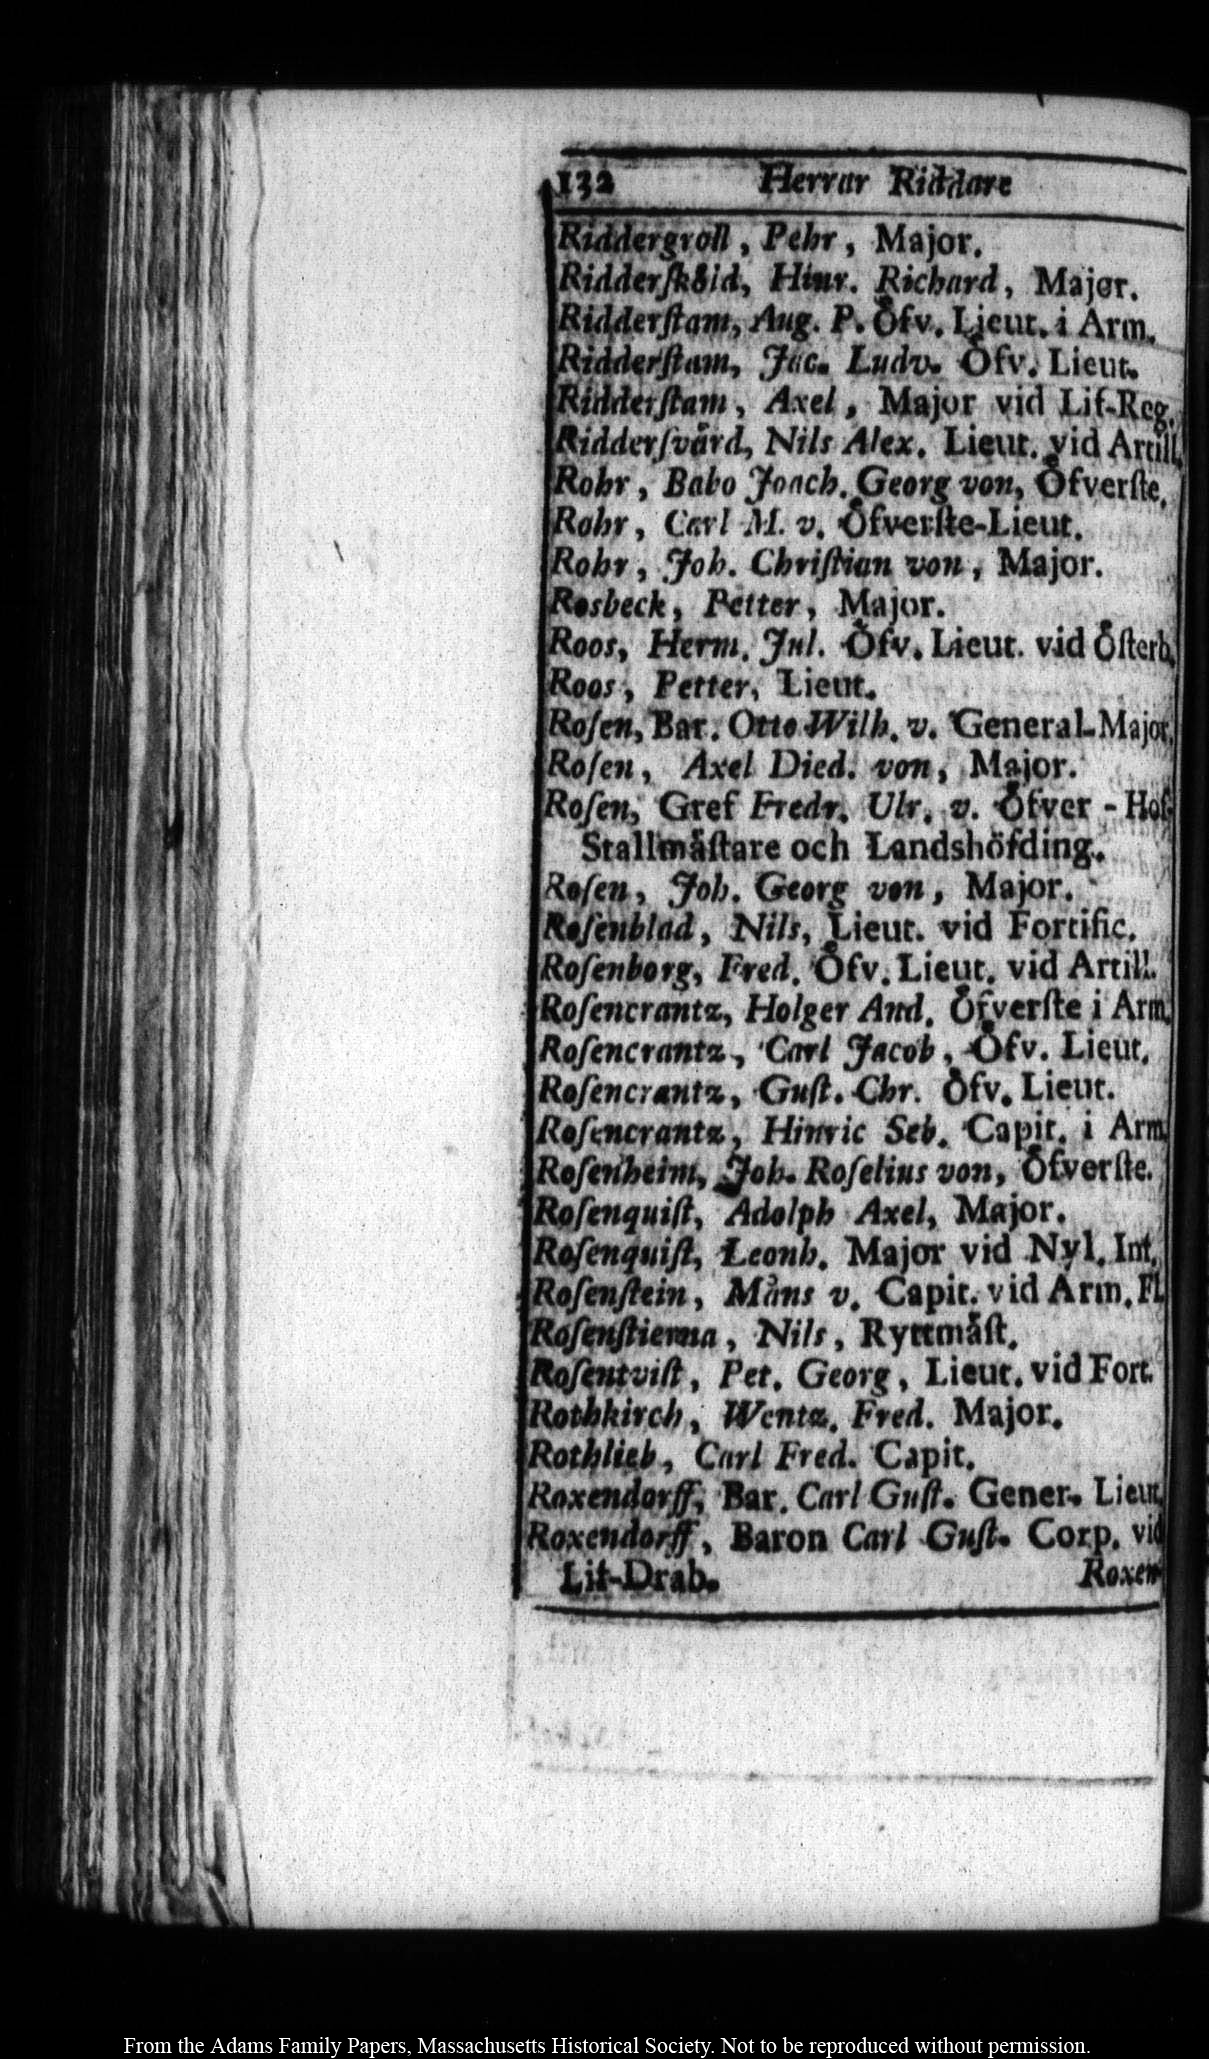 132 Herrar Riddare
Riddergroll, Pehr, Major.
Ridderſköld, Hinr. Richard, Major.
Ridderſtam, Aug. P. Öfv. Lieut. i Arm.
Ridderſtam, Jac. Ludv. Öfv. Lieut.
Ridderſtam, Axel, Major vid Lif-Reg.
Ridderſvärd, Nils Alex. Lieut. vid Artill.
Rohr, Babo Joach. Georg von, Öfverſte.
Rohr, Carl M. v. Öfverſte-Lieut.
Rohr, Joh. Chriſtian von, Major.
Rosbeck, Petter, Major.
Roos, Herm. Jul. Öfv. Lieut. vid Öſterb.
Roos, Petter, Lieut.
Roſen, Bar. Otto Wilh. v. General-Major.
Roſen, Axel Died. von, Major.
Roſen, Gref Fredr. Ulr. v. Öfver-Hof-
Stallmäſtare och Landshöfding.
Roſen, Joh. Georg von, Major.
Roſenblad, Nils, Lieut. vid Fortific.
Roſenborg, Fred. Öfv. Lieut. vid Artill.
Roſencrantz, Holger And. Öfverſte i Arm.
Roſencrantz, Carl Jacob, Öfv. Lieut.
Roſencrantz, Guſt. Chr. Öfv. Lieut.
Roſencrantz, Hinric Seb. Capit. i Arm.
Roſenheim, Joh. Roſelius von, Öfverſte.
Roſenquiſt, Adolph Axel, Major.
Roſenquiſt, Leonh. Major vid Nyl. Inf.
Roſenſtein, Måns v. Capit. vid Arm. Fl.
Roſenſtierna, Nils, Ryttmäſt.
Roſentviſt, Pet. Georg, Lieut. vid Fort.
Rothkirch, Wentz. Fred. Major.
Rothlieb, Carl Fred. Capit.
Roxendorff, Bar. Carl Guſt. Gener. Lieut.
Roxendorff, Baron Carl Guſt. Corp. vid
Lif-Drab. Roxen-
From the Adams Family Papers, Massachusetts Historical Society. Not to be reproduced without permission.